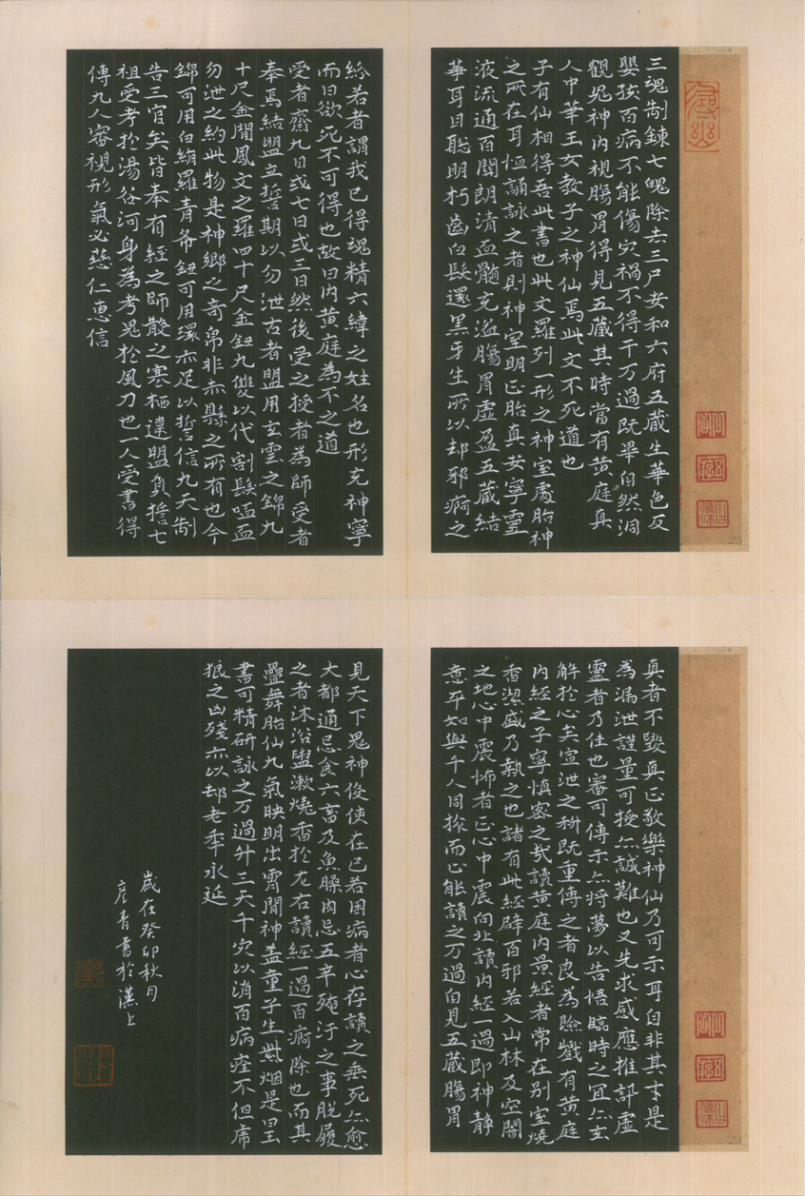 三魂制鍊七魄除去三尸安和六府五藏生華色反
嬰孩百病不能傷災禍不得干万過既畢自然洞
觀鬼神內視腸胃得見五藏其時當有黃庭真
人中華玉女教子之神仙焉此文不死道也
子有仙相得吾此書也此文羅列一形之神室處胎神
之所在耳恒誦詠之者則神室明正胎真安寧靈
液流通百關朗清血髓充溢腸胃虛盈五藏結
華耳目聰明朽齒白髮還黑牙生所以却邪痾之
紛若者謂我已得魂精六緯之姓名也形充神寧
而曰欲死不可得也故曰內黃庭為不之道
受者齋九日或七日或三日然後受之授者為師受者
奉焉結盟立誓期以勿泄古者盟用玄雲之錦九
十尺金闌鳳文之羅四十尺金鈕九雙以代割髮歃血
勿泄之約此物是神鄉之奇帛非赤縣之所有也今
錦可用白絹羅青布鈕可用環亦足以誓信九天制
告三官矣皆奉有經之師散之寒栖違盟負誓七
祖受考於湯谷河身為考鬼於風刀也一人受書得
傳九人審視形氣必慈仁惠信
真者不毀真正敬樂神仙乃可示耳自非其才是
為漏泄謹量可授亦誠難也又先求感應推訊虛
靈者乃佳也審可傳示亦將夢以告悟臨時之宜亦玄
解於心矣宣泄之科既重傳之者良為險巇有黃庭
內經之子寧慎密之哉讀黃庭內景經者常在別室燒
香潔盛乃執之也諸有此經辟百邪若入山林及空闇
之地心中震怖者正心中震向北讀內經一過即神靜
意平如與千人同旅而正能讀之万過自見五藏腸胃
見天下鬼神役使在已若困病者心存讀之垂死亦愈
大都通忌食六畜及魚臊肉忌五辛殗汙之事脫履
之者沐浴盥漱燒香於左右讀經一過百痾除也而其
疊舞胎仙九氣映明出霄間神蓋童子生紫烟是曰玉
書可精研詠之万過升三天千災以消百病痊不但虎
狼之凶殘亦以却老年永延
歲在癸卯秋月
唐青書於漢上